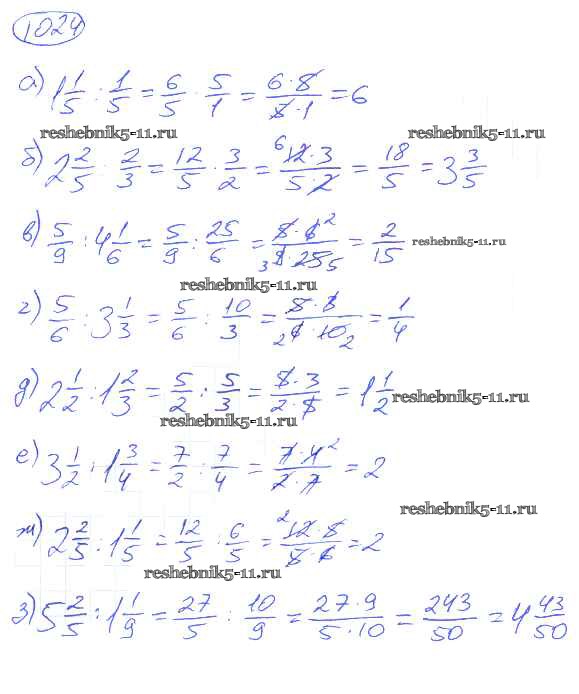 1024
а) 1 1/5 : 1/5 = 6/5 · 5/1 = 6·5/5·1 = 6
reshebnik5-11.ru reshebnik5-11.ru
б) 2 2/5 : 2/3 = 12/5 · 3/2 = 6 12·3/5·2 = 18/5 = 3 3/5
в) 5/9 : 4 1/6 = 5/9 : 25/6 = 5·6 2/3 9·25 5 = 2/15 reshebnik5-11.ru
reshebnik5-11.ru
г) 5/6 : 3 1/3 = 5/6 : 10/3 = 5·3/2 6·10 2 = 1/4
д) 2 1/2 : 1 2/3 = 5/2 : 5/3 = 5·3/2·5 = 1 1/2 reshebnik5-11.ru
reshebnik5-11.ru
е) 3 1/2 : 1 3/4 = 7/2 : 7/4 = 7·4 2/2·7 = 2
reshebnik5-11.ru
ж) 2 2/5 : 1 1/5 = 12/5 : 6/5 = 2 12·5/5·6 = 2
reshebnik5-11.ru
з) 5 2/5 : 1 1/9 = 27/5 : 10/9 = 27·9/5·10 = 243/50 = 4 43/50